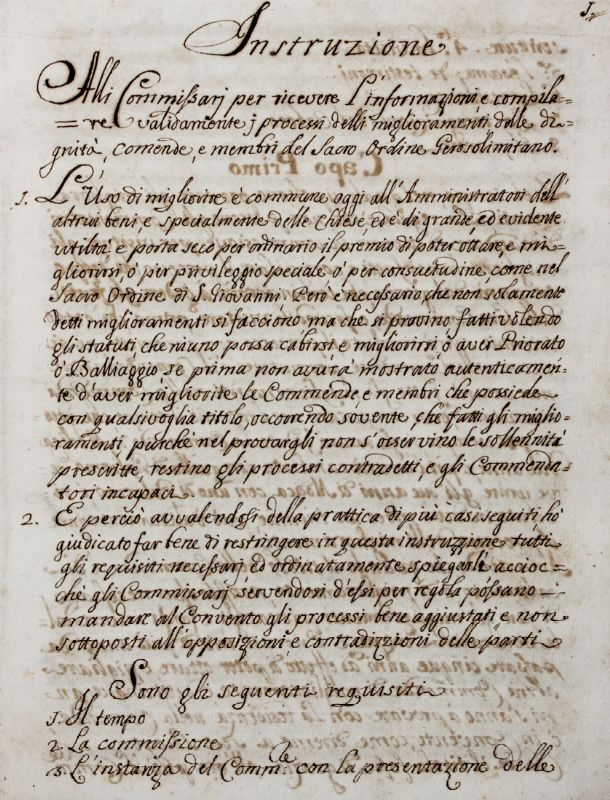 1.
Instruzione
Alli Commissarj per ricevere l'informazioni, e compila=
=re validamente j processi delli miglioramenti delle di=
gnità, comende, e membri del Sacro Ordine Gerosolimitano.
1. L'Uso di migliorire è commune oggi all'Amministratori dell'
altrui beni e specialmente delle Chiese, ed è di grande, ed evidente
utiltà e porta seco per ordinario il premio di poter ottare, e mi=
gliorirsi, ò per privileggio speciale ò per consuetudine, come nel
Sacro Ordine di S. Giovanni. Però è necessario, che non solamente
detti miglioramenti si facciono ma che si provino fatti volendo
gli statuti, che niuno possa cabirsi e migliorirsi ò aver Priorato
ò Balliaggio se prima non avurà mostrato autenticamen=
te d'aver migliorite le Commende e membri che possiede
con qualsivoglia titolo, occorrendo sovente, che fatti gli miglio=
ramenti, purchè nel provargli non s'osservino le sollennità
prescritte, restino gli processi contradetti, e gli Commenda=
tori incapaci.
2. E perciò avvalendosi della prattica di più casi seguiti hò
giudicato far bene di restringere in questa instruzzione tutti
gli requisiti necessarj, ed ordinatamente spiegarli accioc=
chè gli Commissarj servendosi d'essi per regola possano
mandare al Convento gli processi bene aggiustati, e non
sottoposti all'opposizioni, e contradizzioni delle parti
Sono gli seguenti requisiti
1. Il tempo
2. La commissione
3. L'instanza del Comm.re con la presentazione delle